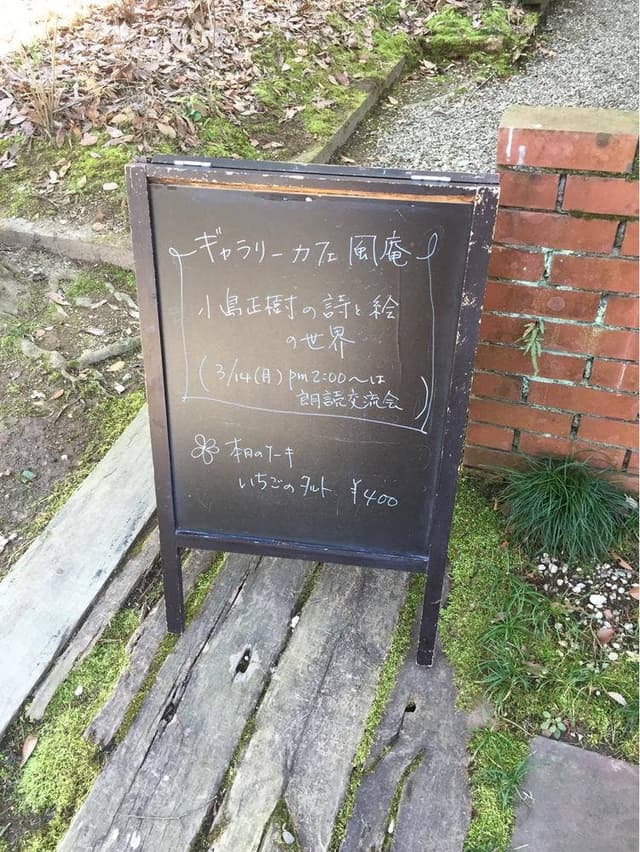 ギャラリーカフェ 風庵
小島正樹の詩と絵
の世界
(3/14(月) pm2:00〜は
朗読交流会)
本日のケーキ
いちごのタルト ¥400